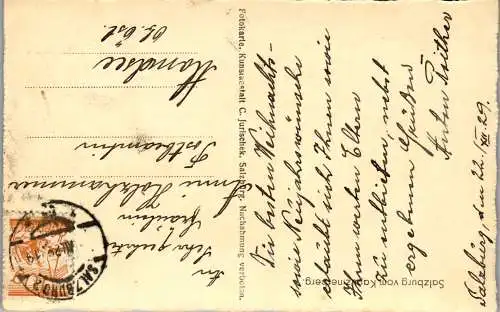 Salzburg, am 22./XII. 29.
Die besten Weihnachts-
sowie Neujahrswünsche
erlaubt sich Ihnen sowie
Ihren werten Eltern
zu entbieten, nebst
Grüßen
ergebenst
Anton
An
Sehr geehrte
Fräulein
Anni
Postbeamtin
Mondsee
Ob. Öst.
Fotokarte, Kunstanstalt C. Jurischek, Salzburg. Nachahmung verboten.
Salzburg vom Kapuzinerberg
SALZBURG 2